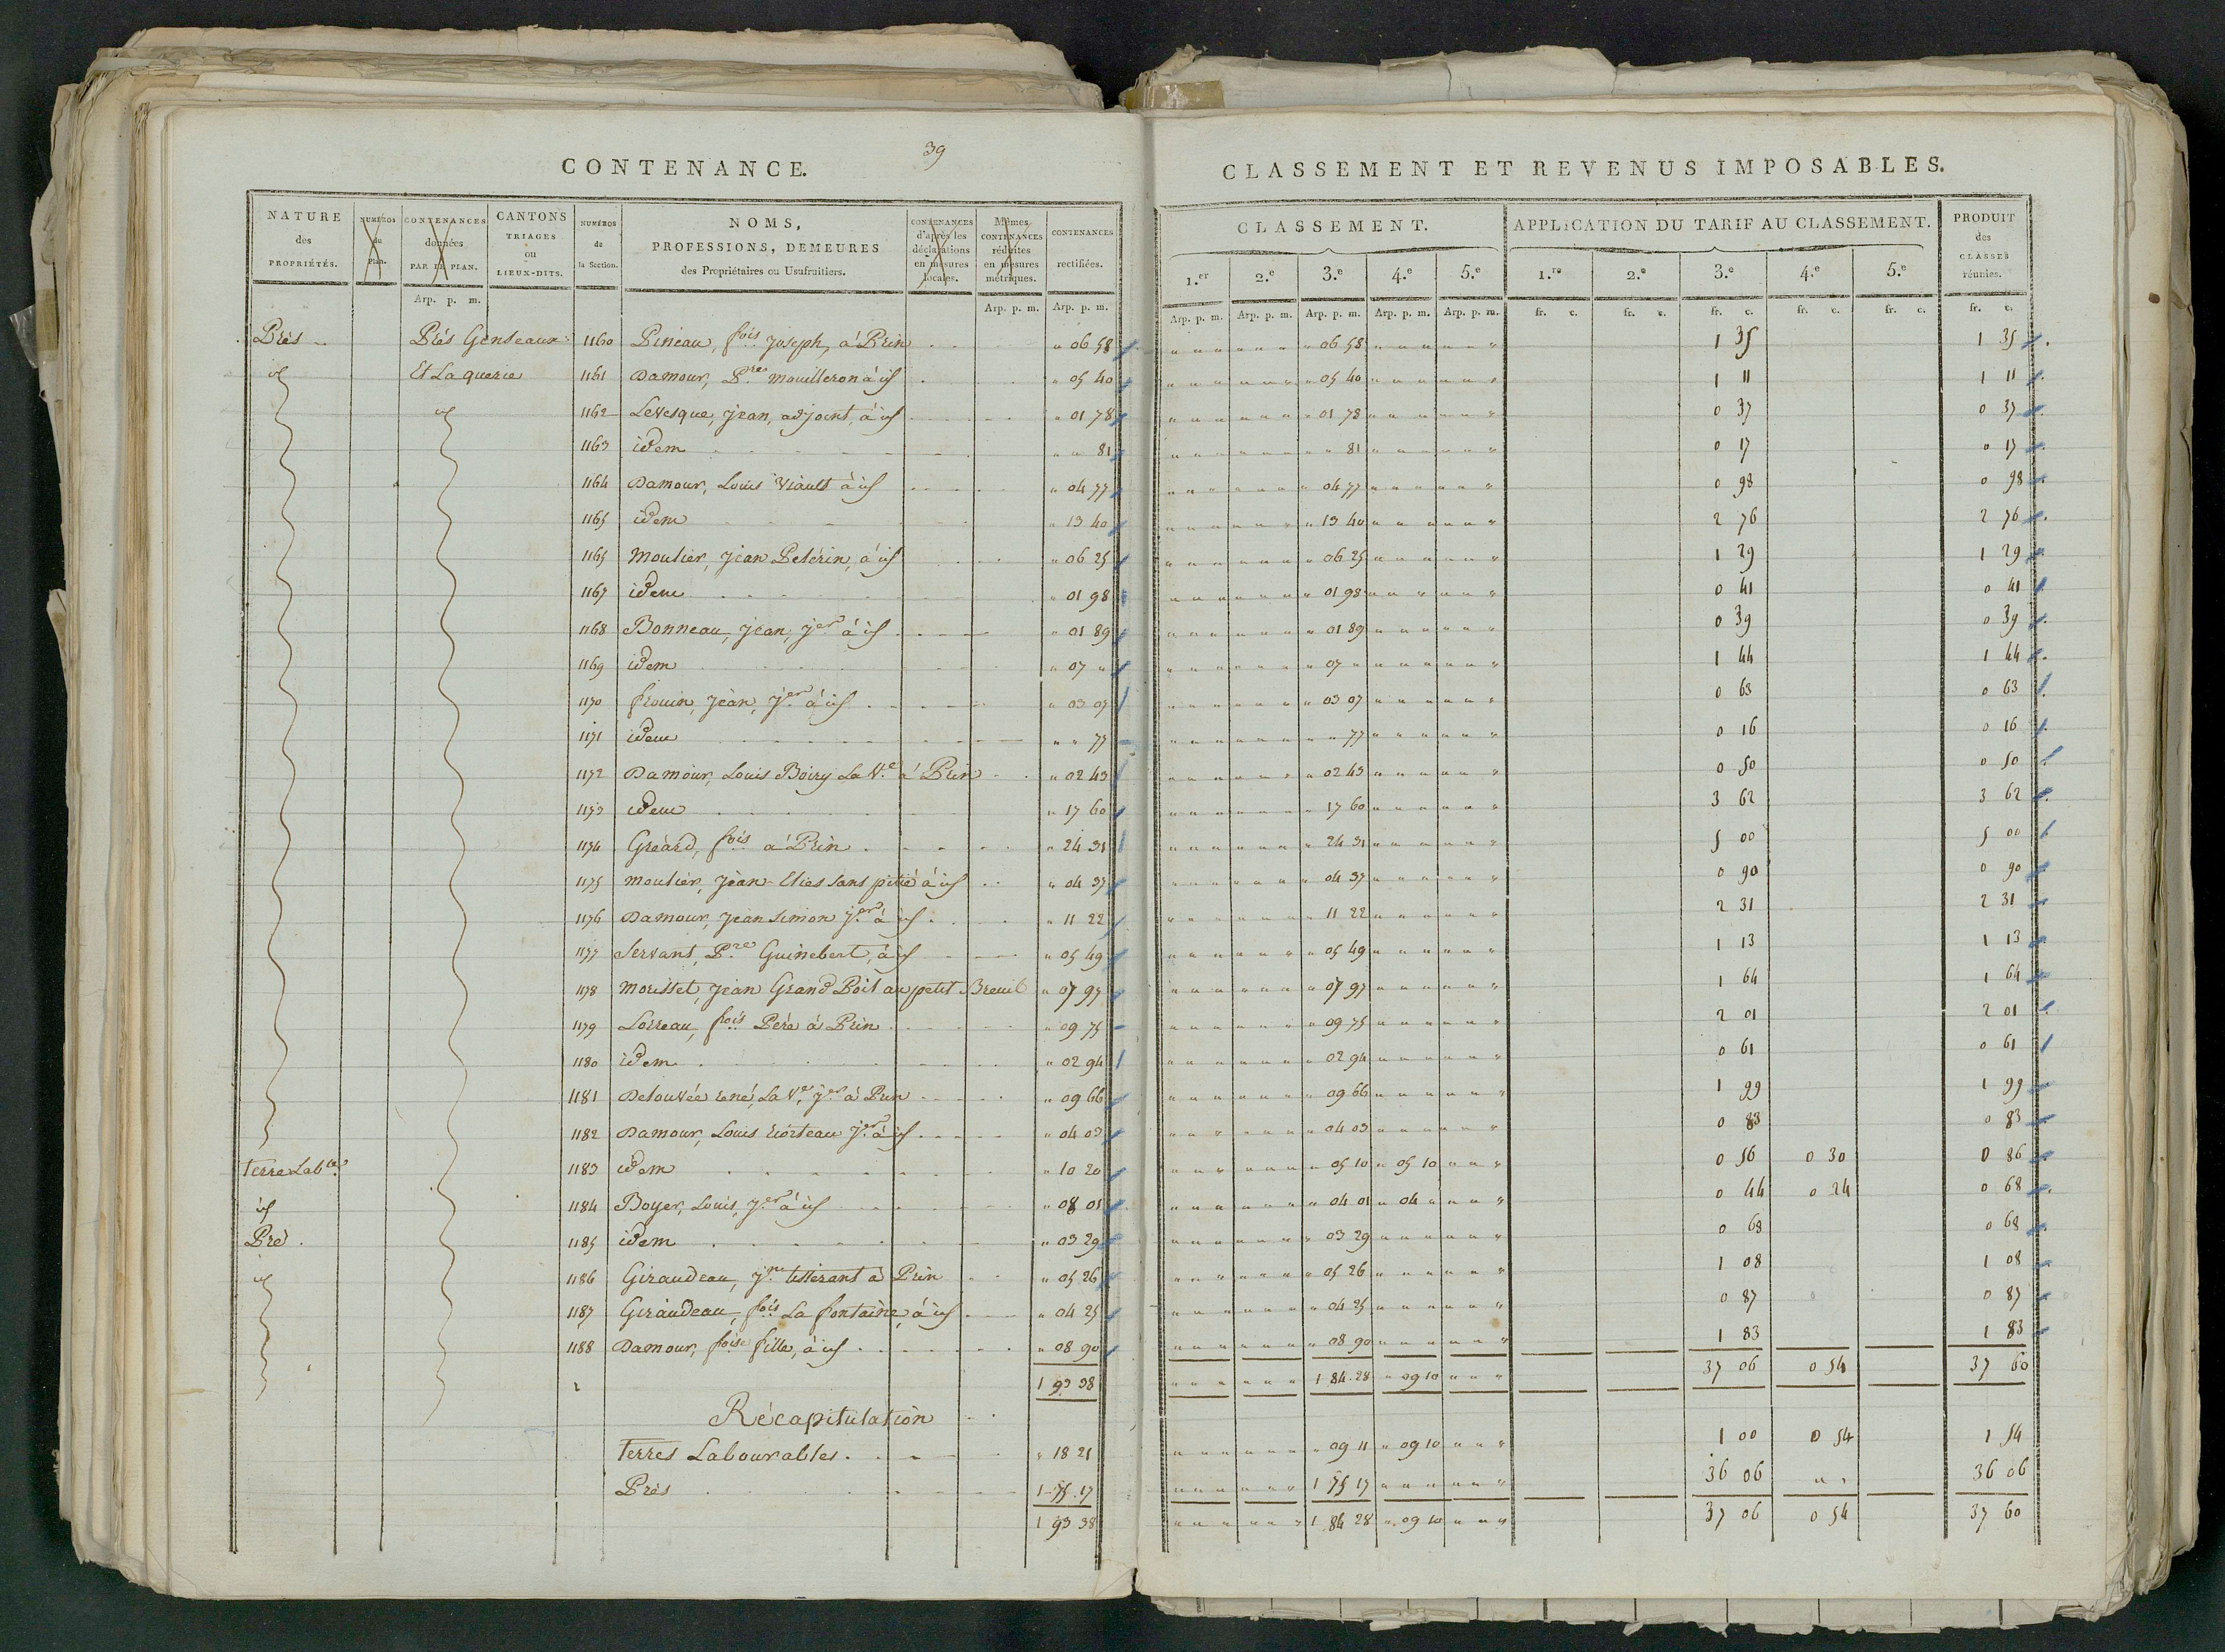 39
CONTENANCE.
NATURE des PROPRIÉTÉS.
NUMÉROS du Plan.
CONTENANCES données PAR LE PLAN.
CANTONS TRIAGES ou LIEUX-DITS.
NUMÉROS de la Section.
NOMS, PROFESSIONS, DEMEURES des Propriétaires ou Usufruitiers.
CONTENANCES d'après les déclarations en mesures locales.
Mêmes CONTENANCES réduites en mesures métriques.
CONTENANCES rectifiées.
Arp. p. m. Arp. p. m. Arp. p. m.
CLASSEMENT ET REVENUS IMPOSABLES.
CLASSEMENT. APPLICATION DU TARIF AU CLASSEMENT. PRODUIT des CLASSES réunies.
1.er 2.e 3.e 4.e 5.e 1.re 2.e 3.e 4.e 5.e
Arp. p. m. Arp. p. m. Arp. p. m. Arp. p. m. Arp. p. m. fr. c. fr. c. fr. c. fr. c. fr. c. fr. c.
Prés Prés Genseaux 1160 Pineau, fois Joseph, à Prin " 06 58 " 06 58 1 35 1 35
id Et Laquerie 1161 Damour, Pre Mouilleron à id " 05 40 " 05 40 1 11 1 11
id 1162 Levesque, Jean, adjoint, à id " 01 78 " 01 78 0 37 0 37
1163 idem " " 81 " " 81 0 17 0 17
1164 Damour, Louis Viault à id " 04 77 " 04 77 0 98 0 98
1165 idem " 13 40 " 13 40 2 76 2 76
1165 Moulier, Jean Pelérin, à id " 06 25 " 06 25 1 29 1 29
1167 idem " 01 98 " 01 98 0 41 0 41
1168 Bonneau, Jean, Jer à id " 01 89 " 01 89 0 39 0 39
1169 idem " 07 " " 07 " 1 44 1 44
1170 frouin, Jean, Jer à id " 03 07 " 03 07 0 63 0 63
1171 idem " " 77 " " 77 0 16 0 16
1172 Damour, Louis Boiry La Ve à Prin " 02 43 " 02 43 0 50 0 50
1173 idem " 17 60 " 17 60 3 62 3 62
1174 Gréard, fois à Prin " 24 31 " 24 31 5 00 5 00
1175 Moulier, Jean Elies sans pitié à id " 04 37 " 04 37 0 90 0 90
1176 Damour, Jean Simon Jer à id " 11 22 " 11 22 2 31 2 31
1177 Servant, Pre Guinebert, à id " 05 49 " 05 49 1 13 1 13
1178 Morisset, Jean Grand Poil au petit Breuil " 07 97 " 07 97 1 64 1 64
1179 Loireau, fois Père à Prin " 09 75 " 09 75 2 01 2 01
1180 idem " 02 94 " 02 94 0 61 0 61
1181 Delouvée rené, La Ve, Jer à Prin " 09 66 " 09 66 1 99 1 99
1182 Damour, Louis Jer à id " 04 03 " 04 03 0 83 0 83
Terre Lable 1183 idem " 10 20 " 05 10 " 05 10 0 56 0 30 0 86
id 1184 Boyer, Louis, Jer à id " 08 01 " 04 01 " 04 " 0 44 0 24 0 68
Pré 1185 idem " 03 29 " 03 29 0 68 0 68
id 1186 Giraudeau, Jn tisserant à Prin " 05 26 " 05 26 1 08 1 08
1187 Giraudeau, fois La fontaine, à id " 04 25 " 04 25 0 87 0 87
1188 Damour, foise fille, à id " 08 90 " 08 90 1 83 1 83
1 93 38 1 84 28 " 09 10 37 06 0 54 37 60
Récapitulation
Terres Labourables " 18 21 " 09 11 " 09 10 1 00 0 54 1 54
Prés 1 75 17 1 75 17 36 06 " " 36 06
1 93 38 1 84 28 " 09 10 37 06 0 54 37 60